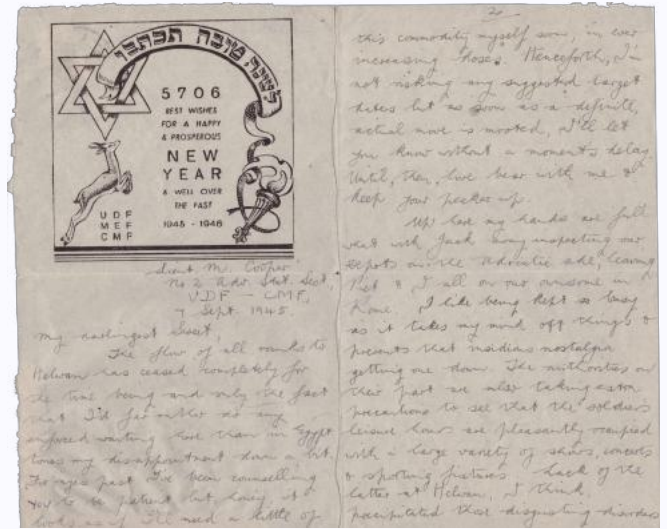 לשנה טובה תכתבו
5706
BEST WISHES
FOR A HAPPY
& PROSPEROUS
NEW
YEAR
& WELL OVER
THE FAST
UDF
MEF
CMF
1945 - 1946
Lieut. M. Cooper
No 2 Adv. Stat. Sect,
UDF - CMF,
7 Sept. 1945.
My darlingest Sweet,
The flow of all ranks to
Helwan has ceased completely for
the time being and only the fact
that I'd far rather do any
enforced waiting here than in Egypt
tones my disappointment down a bit.
For ages past I've been counselling
you to be patient but honey, it
looks as if I'll need a little of
2
this commodity myself soon, in ever
increasing doses. Henceforth, I'm
not risking any suggested target
dates but as soon as a definite,
actual move is mooted, I'll let
you know without a moments delay.
Until, then, luv bear with me &
keep your pecker up.
My hands are full
what with Jack away inspecting our
depots on the Adriatic side, leaving
& I all on our ownsome in
Rome. I like being kept so busy
as it takes my mind off things &
prevents that insidious nostalgia
getting one down. The authorities on
their part are also taking
precautions to see that the soldiers
leisure hours are pleasantly occupied
with a large variety of shows, concerts
& sporting fixtures. Lack of the
latter at Helwan, I think,
precipitated those disgusting disorders